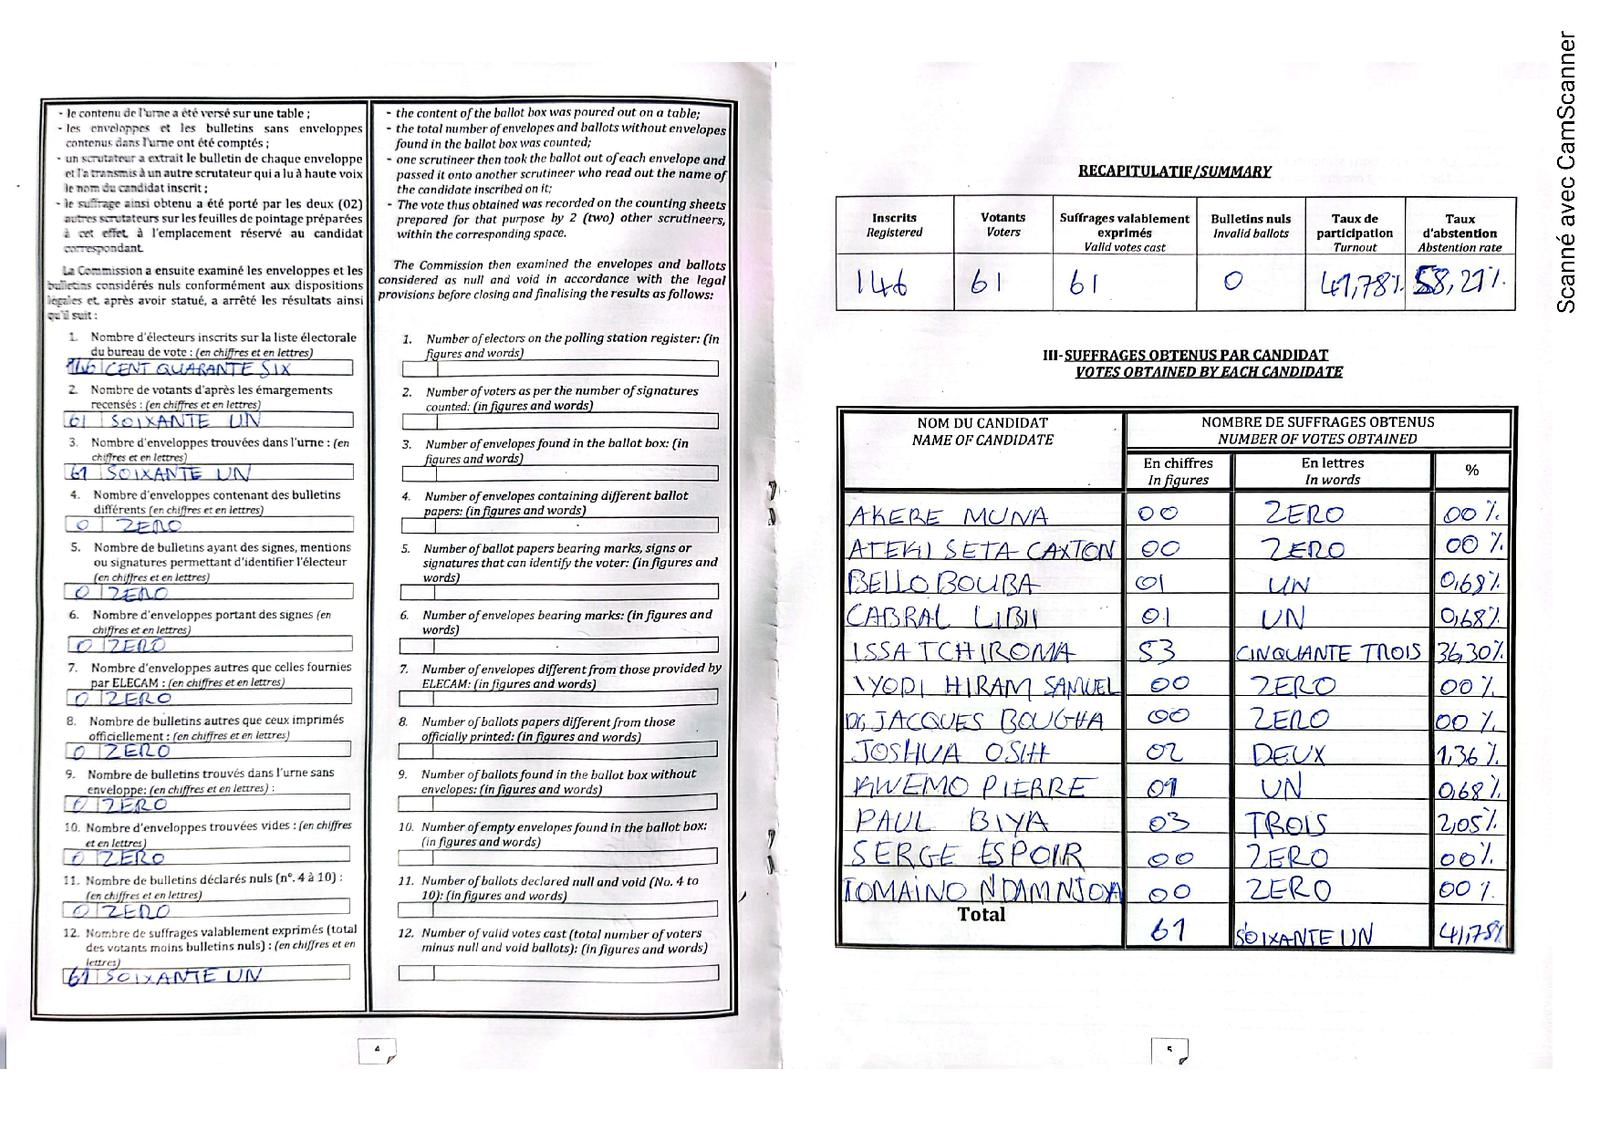 - le contenu de l'urne a été versé sur une table ;
- les enveloppes et les bulletins sans enveloppes
contenus dans l'urne ont été comptés ;
- un scrutateur a extrait le bulletin de chaque enveloppe
et l'a transmis à un autre scrutateur qui a lu à haute voix
le nom du candidat inscrit ;
- le suffrage ainsi obtenu a été porté par les deux (02)
autres scrutateurs sur les feuilles de pointage préparées
à cet effet, à l'emplacement réservé au candidat
correspondant.
La Commission a ensuite examiné les enveloppes et les
bulletins considérés nuls conformément aux dispositions
légales et, après avoir statué, a arrêté les résultats ainsi
qu'il suit :
1. Nombre d'électeurs inscrits sur la liste électorale
du bureau de vote : (en chiffres et en lettres)
146 CENT QUARANTE SIX
2. Nombre de votants d'après les émargements
recensés : (en chiffres et en lettres)
61 SOIXANTE UN
3. Nombre d'enveloppes trouvées dans l'urne : (en
chiffres et en lettres)
61 SOIXANTE UN
4. Nombre d'enveloppes contenant des bulletins
différents (en chiffres et en lettres)
0 ZERO
5. Nombre de bulletins ayant des signes, mentions
ou signatures permettant d'identifier l'électeur
(en chiffres et en lettres)
0 ZERO
6. Nombre d'enveloppes portant des signes (en
chiffres et en lettres)
0 ZERO
7. Nombre d'enveloppes autres que celles fournies
par ELECAM : (en chiffres et en lettres)
0 ZERO
8. Nombre de bulletins autres que ceux imprimés
officiellement : (en chiffres et en lettres)
0 ZERO
9. Nombre de bulletins trouvés dans l'urne sans
enveloppe: (en chiffres et en lettres) :
0 ZERO
10. Nombre d'enveloppes trouvées vides : (en chiffres
et en lettres)
0 ZERO
11. Nombre de bulletins déclarés nuls (n°. 4 à 10) :
(en chiffres et en lettres)
0 ZERO
12. Nombre de suffrages valablement exprimés (total
des votants moins bulletins nuls) : (en chiffres et en
lettres)
61 SOIXANTE UN
- the content of the ballot box was poured out on a table;
- the total number of envelopes and ballots without envelopes
found in the ballot box was counted;
- one scrutineer then took the ballot out of each envelope and
passed it onto another scrutineer who read out the name of
the candidate inscribed on it;
- The vote thus obtained was recorded on the counting sheets
prepared for that purpose by 2 (two) other scrutineers,
within the corresponding space.
The Commission then examined the envelopes and ballots
considered as null and void in accordance with the legal
provisions before closing and finalising the results as follows:
1. Number of electors on the polling station register: (in
figures and words)
2. Number of voters as per the number of signatures
counted: (in figures and words)
3. Number of envelopes found in the ballot box: (in
figures and words)
4. Number of envelopes containing different ballot
papers: (in figures and words)
5. Number of ballot papers bearing marks, signs or
signatures that can identify the voter: (in figures and
words)
6. Number of envelopes bearing marks: (in figures and
words)
7. Number of envelopes different from those provided by
ELECAM: (in figures and words)
8. Number of ballots papers different from those
officially printed: (in figures and words)
9. Number of ballots found in the ballot box without
envelopes: (in figures and words)
10. Number of empty envelopes found in the ballot box:
(in figures and words)
11. Number of ballots declared null and void (No. 4 to
10): (in figures and words)
12. Number of valid votes cast (total number of voters
minus null and void ballots): (in figures and words)
4
RECAPITULATIF/SUMMARY
Inscrits Votants Suffrages valablement Bulletins nuls Taux de Taux
Registered Voters exprimés Invalid ballots participation d'abstention
Valid votes cast Turnout Abstention rate
146 61 61 0 41,78% 58,21%
III-SUFFRAGES OBTENUS PAR CANDIDAT
VOTES OBTAINED BY EACH CANDIDATE
NOM DU CANDIDAT NOMBRE DE SUFFRAGES OBTENUS
NAME OF CANDIDATE NUMBER OF VOTES OBTAINED
En chiffres En lettres %
In figures In words
AKERE MUNA 00 ZERO 00%
ATEKI SETA CAXTON 00 ZERO 00%
BELLO BOUBA 01 UN 0,68%
CABRAL LIBII 01 UN 0,68%
ISSA TCHIROMA 53 CINQUANTE TROIS 36,30%
IYODI HIRAM SAMUEL 00 ZERO 00%
Dr JACQUES BOUGHA 00 ZERO 00%
JOSHUA OSIH 02 DEUX 1,36%
KWEMO PIERRE 01 UN 0,68%
PAUL BIYA 03 TROIS 2,05%
SERGE ESPOIR 00 ZERO 00%
TOMAINO NDAM NJOYA 00 ZERO 00%
Total 61 SOIXANTE UN 41,78%
5
Scanné avec CamScanner